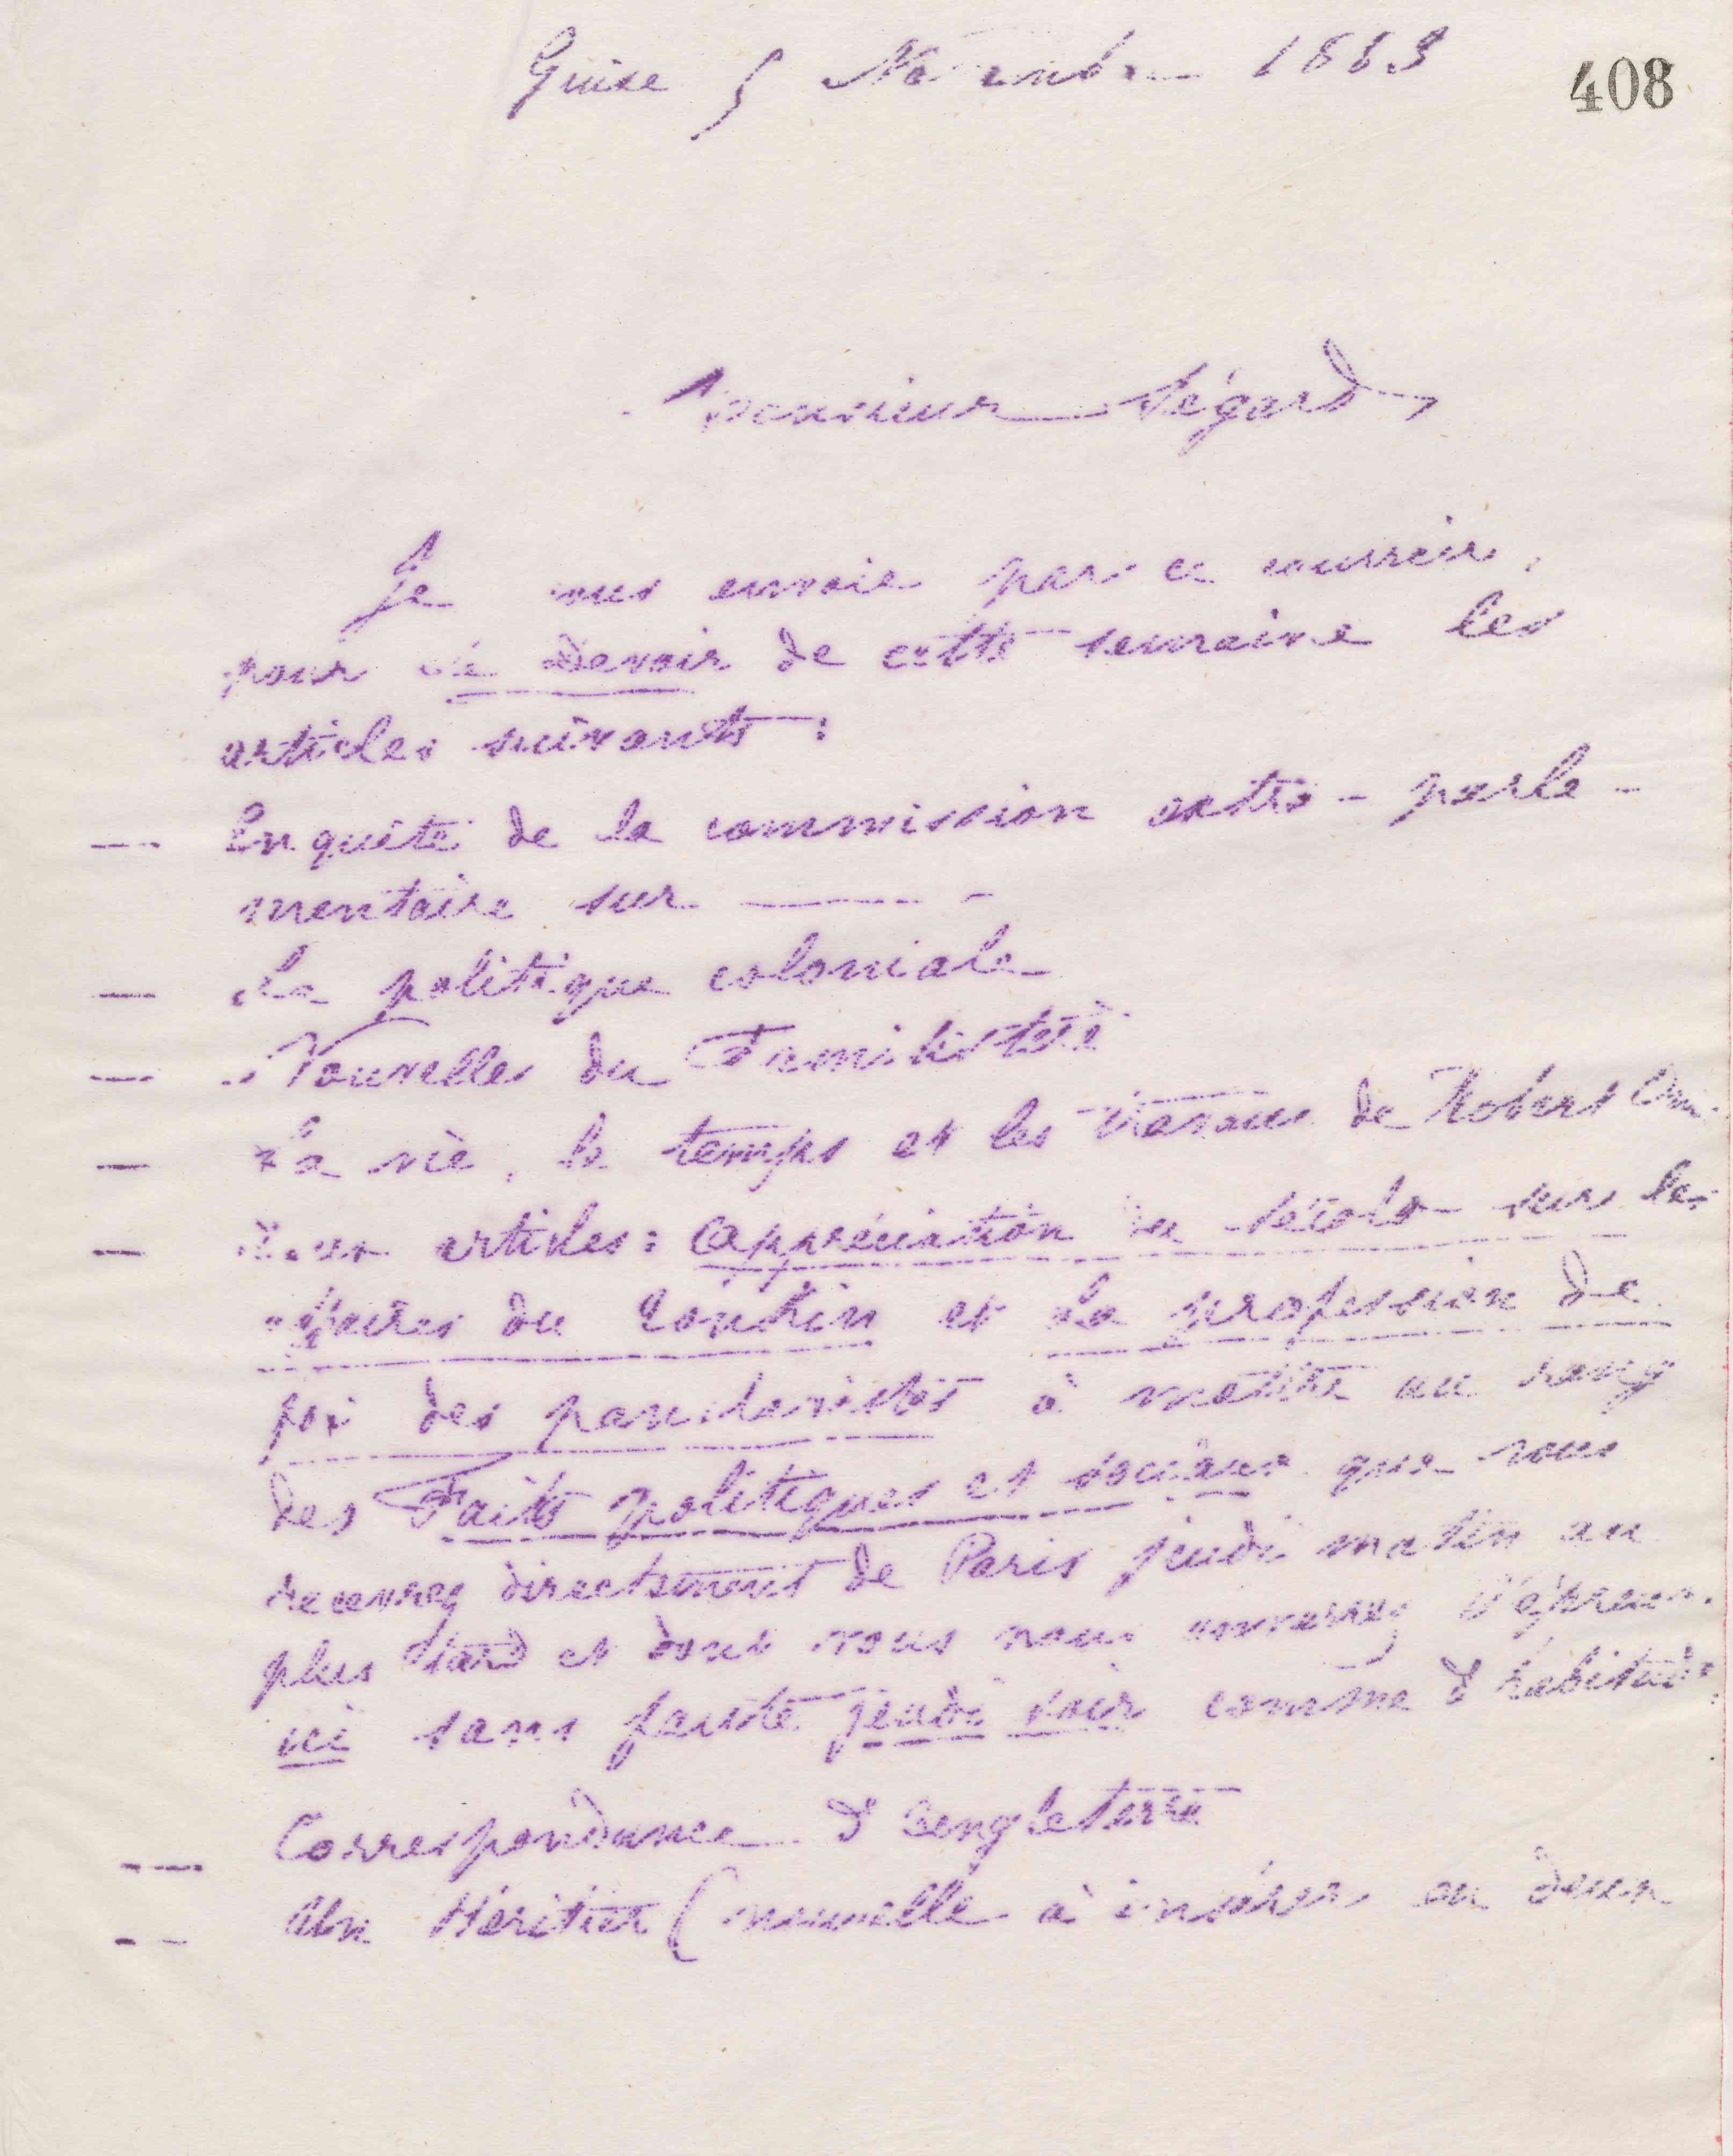 Guise 5 Novembre 1883
408
Monsieur Ségard,
Je vous envoie par ce courrier,
pour Le Devoir de cette semaine les
articles suivants :
— Enquête de la commission extra-parle-
mentaire sur ——— -
— La politique coloniale
— Nouvelles du Familistère
— La vie, le temps et les travaux de Robert Owen
— Deux articles : Appréciation du Secolo sur les
affaires du Tonkin et La profession de
foi des panclastites à mettre au rang
des Faits politiques et sociaux que vous
recevrez directement de Paris jeudi matin au
plus tard et dont vous nous enverrez l'épreuve
ici sans faute jeudi soir comme d'habitude.
— Correspondance d'Angleterre
— Un Héritier (nouvelle à insérer en deux